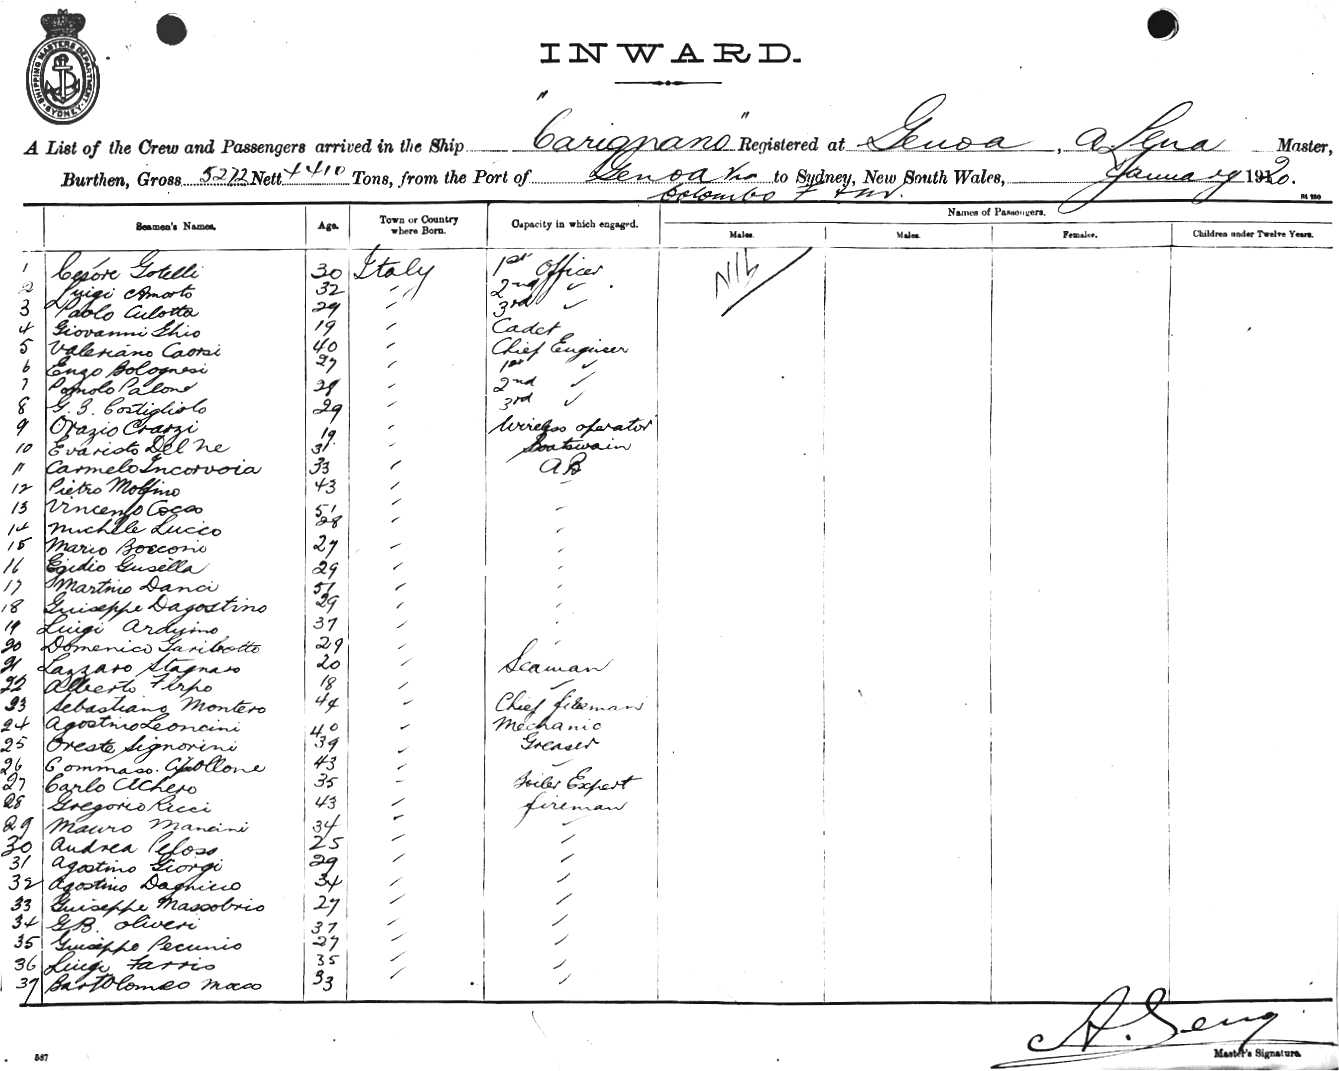 SHIPPING MASTERS DEPARTMENT SYDNEY
INWARD.
A List of the Crew and Passengers arrived in the Ship "Carignano" Registered at Genoa, A Sena Master,
Burthen, Gross 5272 Nett 4410 Tons, from the Port of Genoa via to Sydney, New South Wales, January 1920.
Colombo F
Seamen's Names. Age. Town or Country where Born. Capacity in which engaged. Names of Passengers.
Males. Males. Females. Children under Twelve Years.
1 Cesare Gotelli 30 Italy 1st Officer NIL
2 Luigi Amorto 32 " 2nd "
3 Paolo Culotta 29 " 3rd "
4 Giovanni Ghio 19 " Cadet
5 Valeriano Caorsi 40 " Chief Engineer
6 Enzo Bolognesi 27 " 1st "
7 Palone 29 " 2nd "
8 G. B. Costigliolo 29 " 3rd "
9 Orazio 19 " Wireless operator
10 Evaristo Del Ne 31 " Boatswain
11 Carmelo Incorvoia 33 " AB
12 Pietro Molfino 43 " "
13 Vincenzo Cocco 51 " "
14 Michele Lucco 28 " "
15 Mario Bocconi 27 " "
16 Egidio Gusella 29 " "
17 Martino Danci 51 " "
18 Guiseppe Dagostino 29 " "
19 Luigi Arduino 37 " "
20 Domenico Garibotto 29 " "
21 Lazzaro Stagnaro 20 " Seaman
22 Alberto Firpo 18 " "
23 Sebastiano Montero 44 " Chief fireman
24 Agostino Leoncini 40 " Mechanic
25 Oreste Signorini 39 " Greaser
26 Tommaso Apollone 43 " "
27 Carlo Achero 35 " Boiler Expert
28 Gregorio Ricci 43 " fireman
29 Mauro Mancini 34 " "
30 Andrea Peloso 25 " "
31 Agostino Giorgi 29 " "
32 Agostino Dagnicco 34 " "
33 Guiseppe Massobrio 27 " "
34 G.B. Oliveri 37 " "
35 Guiseppe Pecunio 27 " "
36 Luigi Farris 35 " "
37 Bartolomeo Maco 33 " "
A. Sena
Master's Signature.
567